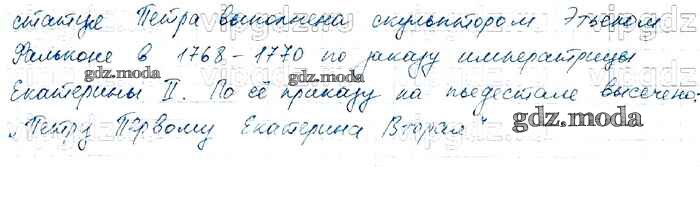 статуе Петра выполнена скульптором Этьеном
Фальконе в 1768-1770 по заказу императрицы
gdz.moda gdz.moda
Екатерины II. По её приказу на пьедестале высечено:
gdz.moda
„Петру Первому Екатерина Вторая"
gdz.moda